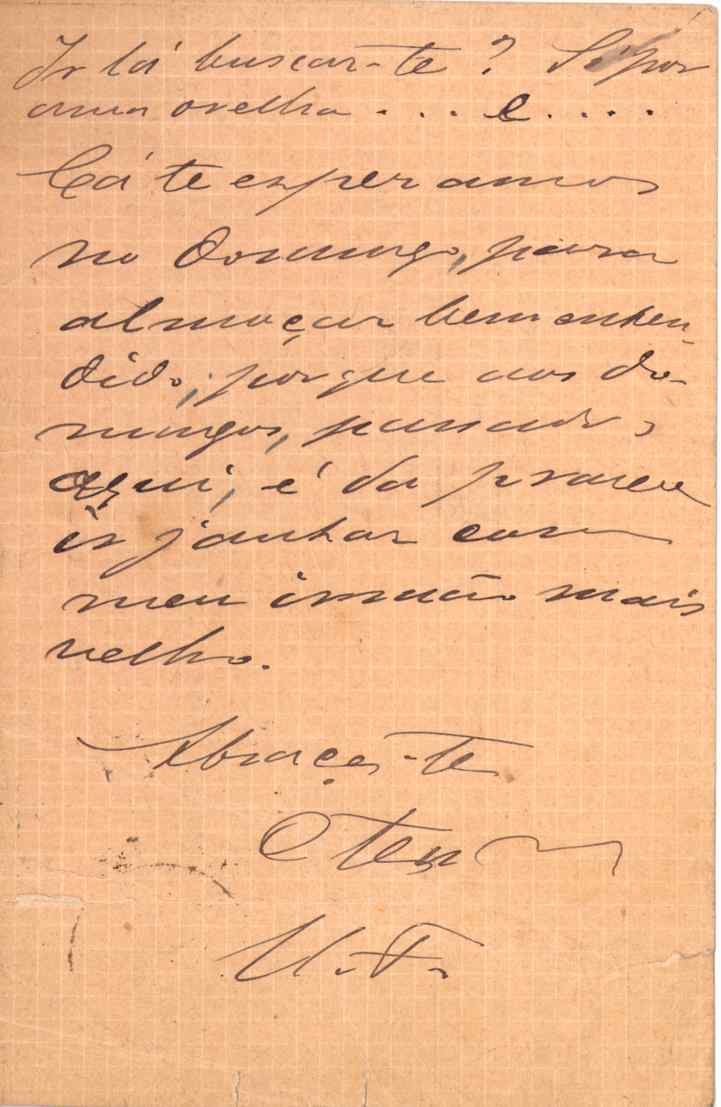 Ir lá buscar-te? Só por
uma ovelha .... e ....
Cá te esperamos
no Domingo, para
almoçar bem enten-
dido, porque aos do-
mingos, passados
aqui, é da praxe
ir jantar com
meu irmão mais
velho.
Abraça-te
O teu